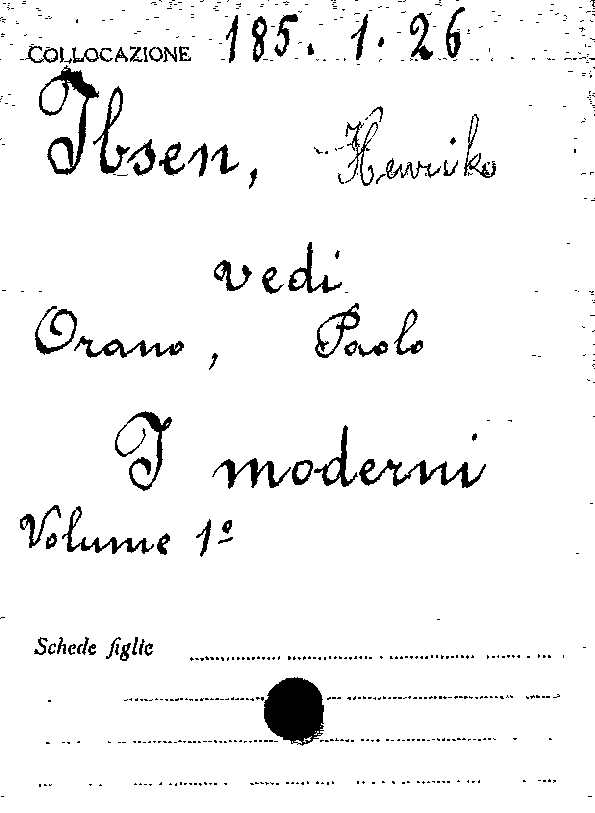 COLLOCAZIONE 185. 1. 26
Ibsen, Henriko
vedi
Orano, Paolo
I moderni
Volume 1º
Schede figlie